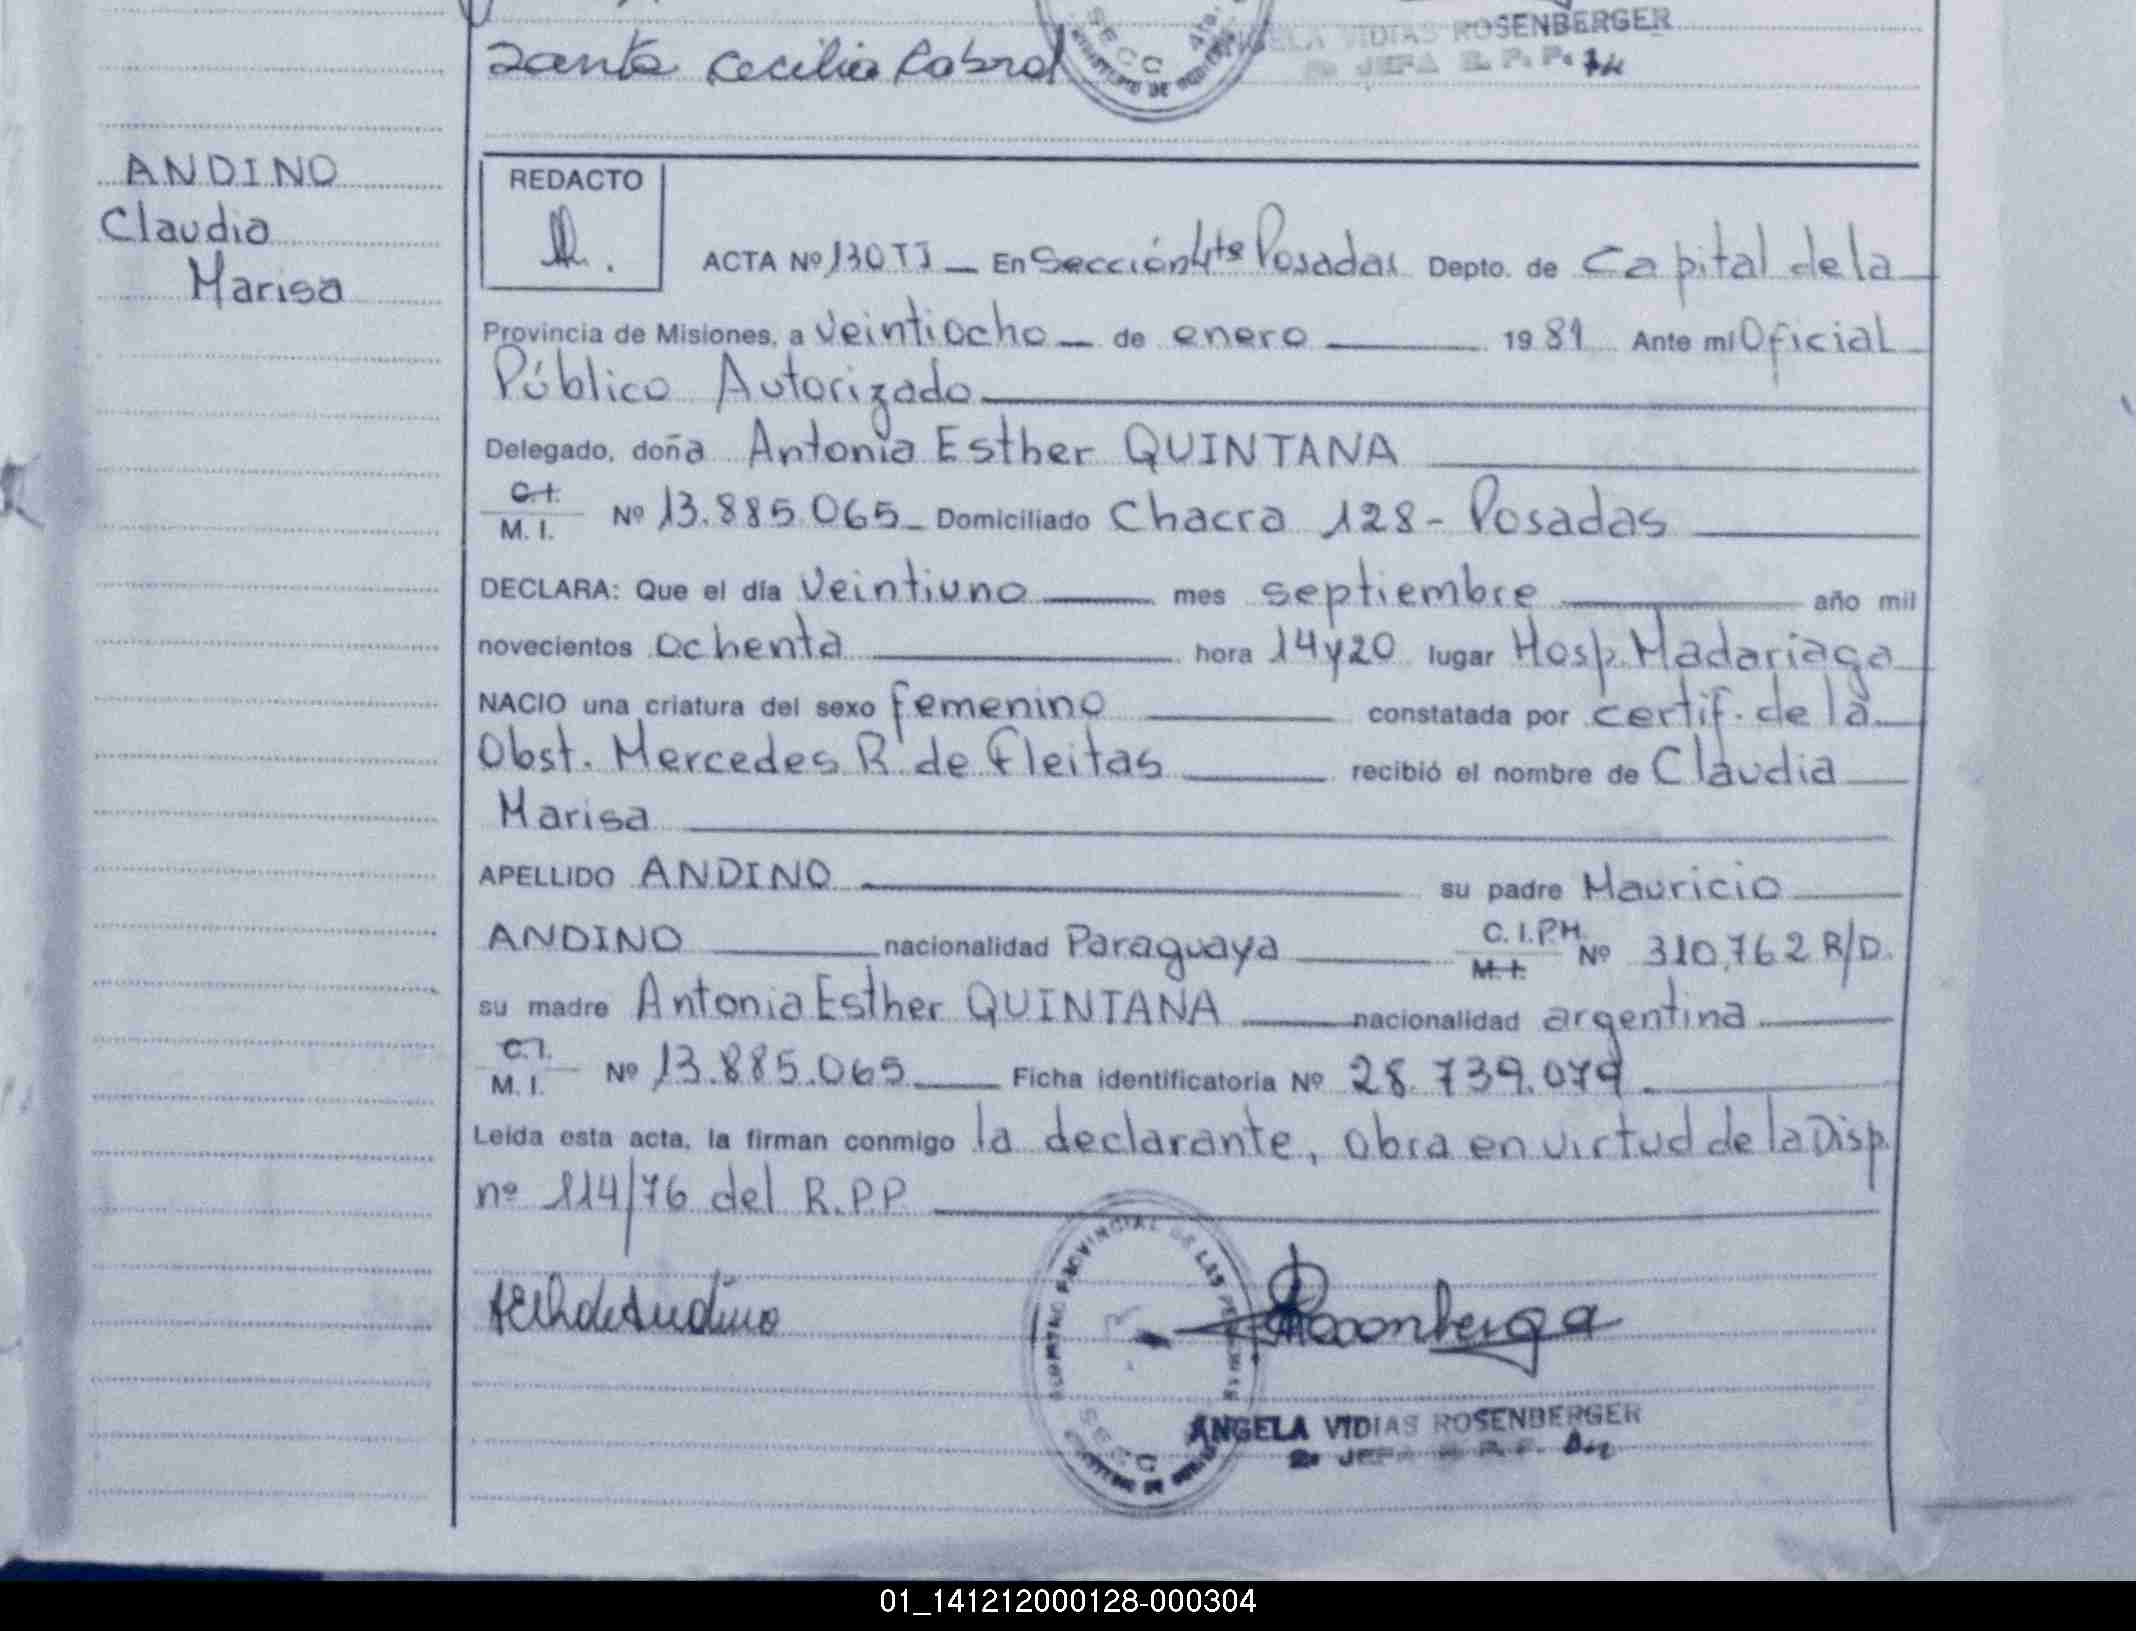 Santa Cecilia Cabral
ANGELA VIDIAS ROSENBERGER
JEFA R. P. P.
SECC 4to.
ANDINO
Claudia
Marisa
REDACTO
ACTA Nº 130 TI — En Sección 4ta Posadas Depto. de Capital de la
Provincia de Misiones, a veintiocho — de enero — 1981 Ante mi Oficial
Público Autorizado
Delegado, doña Antonia Esther QUINTANA
C.I.
M. I. Nº 13.885.065 — Domiciliado Chacra 128 - Posadas
DECLARA: Que el día veintiuno — mes septiembre — año mil
novecientos ochenta — hora 14 y 20 lugar Hosp. Madariaga
NACIO una criatura del sexo femenino — constatada por certif. de la
Obst. Mercedes R de Fleitas — recibió el nombre de Claudia
Marisa
APELLIDO ANDINO — su padre Mauricio
ANDINO — nacionalidad Paraguaya — C. I. P.M. Nº 310,762 R/D.
M.I.
su madre Antonia Esther QUINTANA — nacionalidad argentina
C.I.
M. I. Nº 13.885.065 — Ficha identificatoria Nº 28.739.079
Leída esta acta, la firman conmigo la declarante, obra en virtud de la Disp.
nº 114/76 del R.P.P.
PROVINCIAL DE LAS
SECC
ANGELA VIDIAS ROSENBERGER
JEFA R. P. P.
01_141212000128-000304